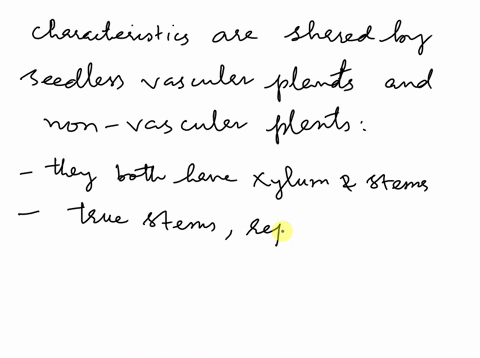 characteristics are shared by
seedless vascular plants and
non-vascular plents:
- they both have xylum & stems
- true stems, rep